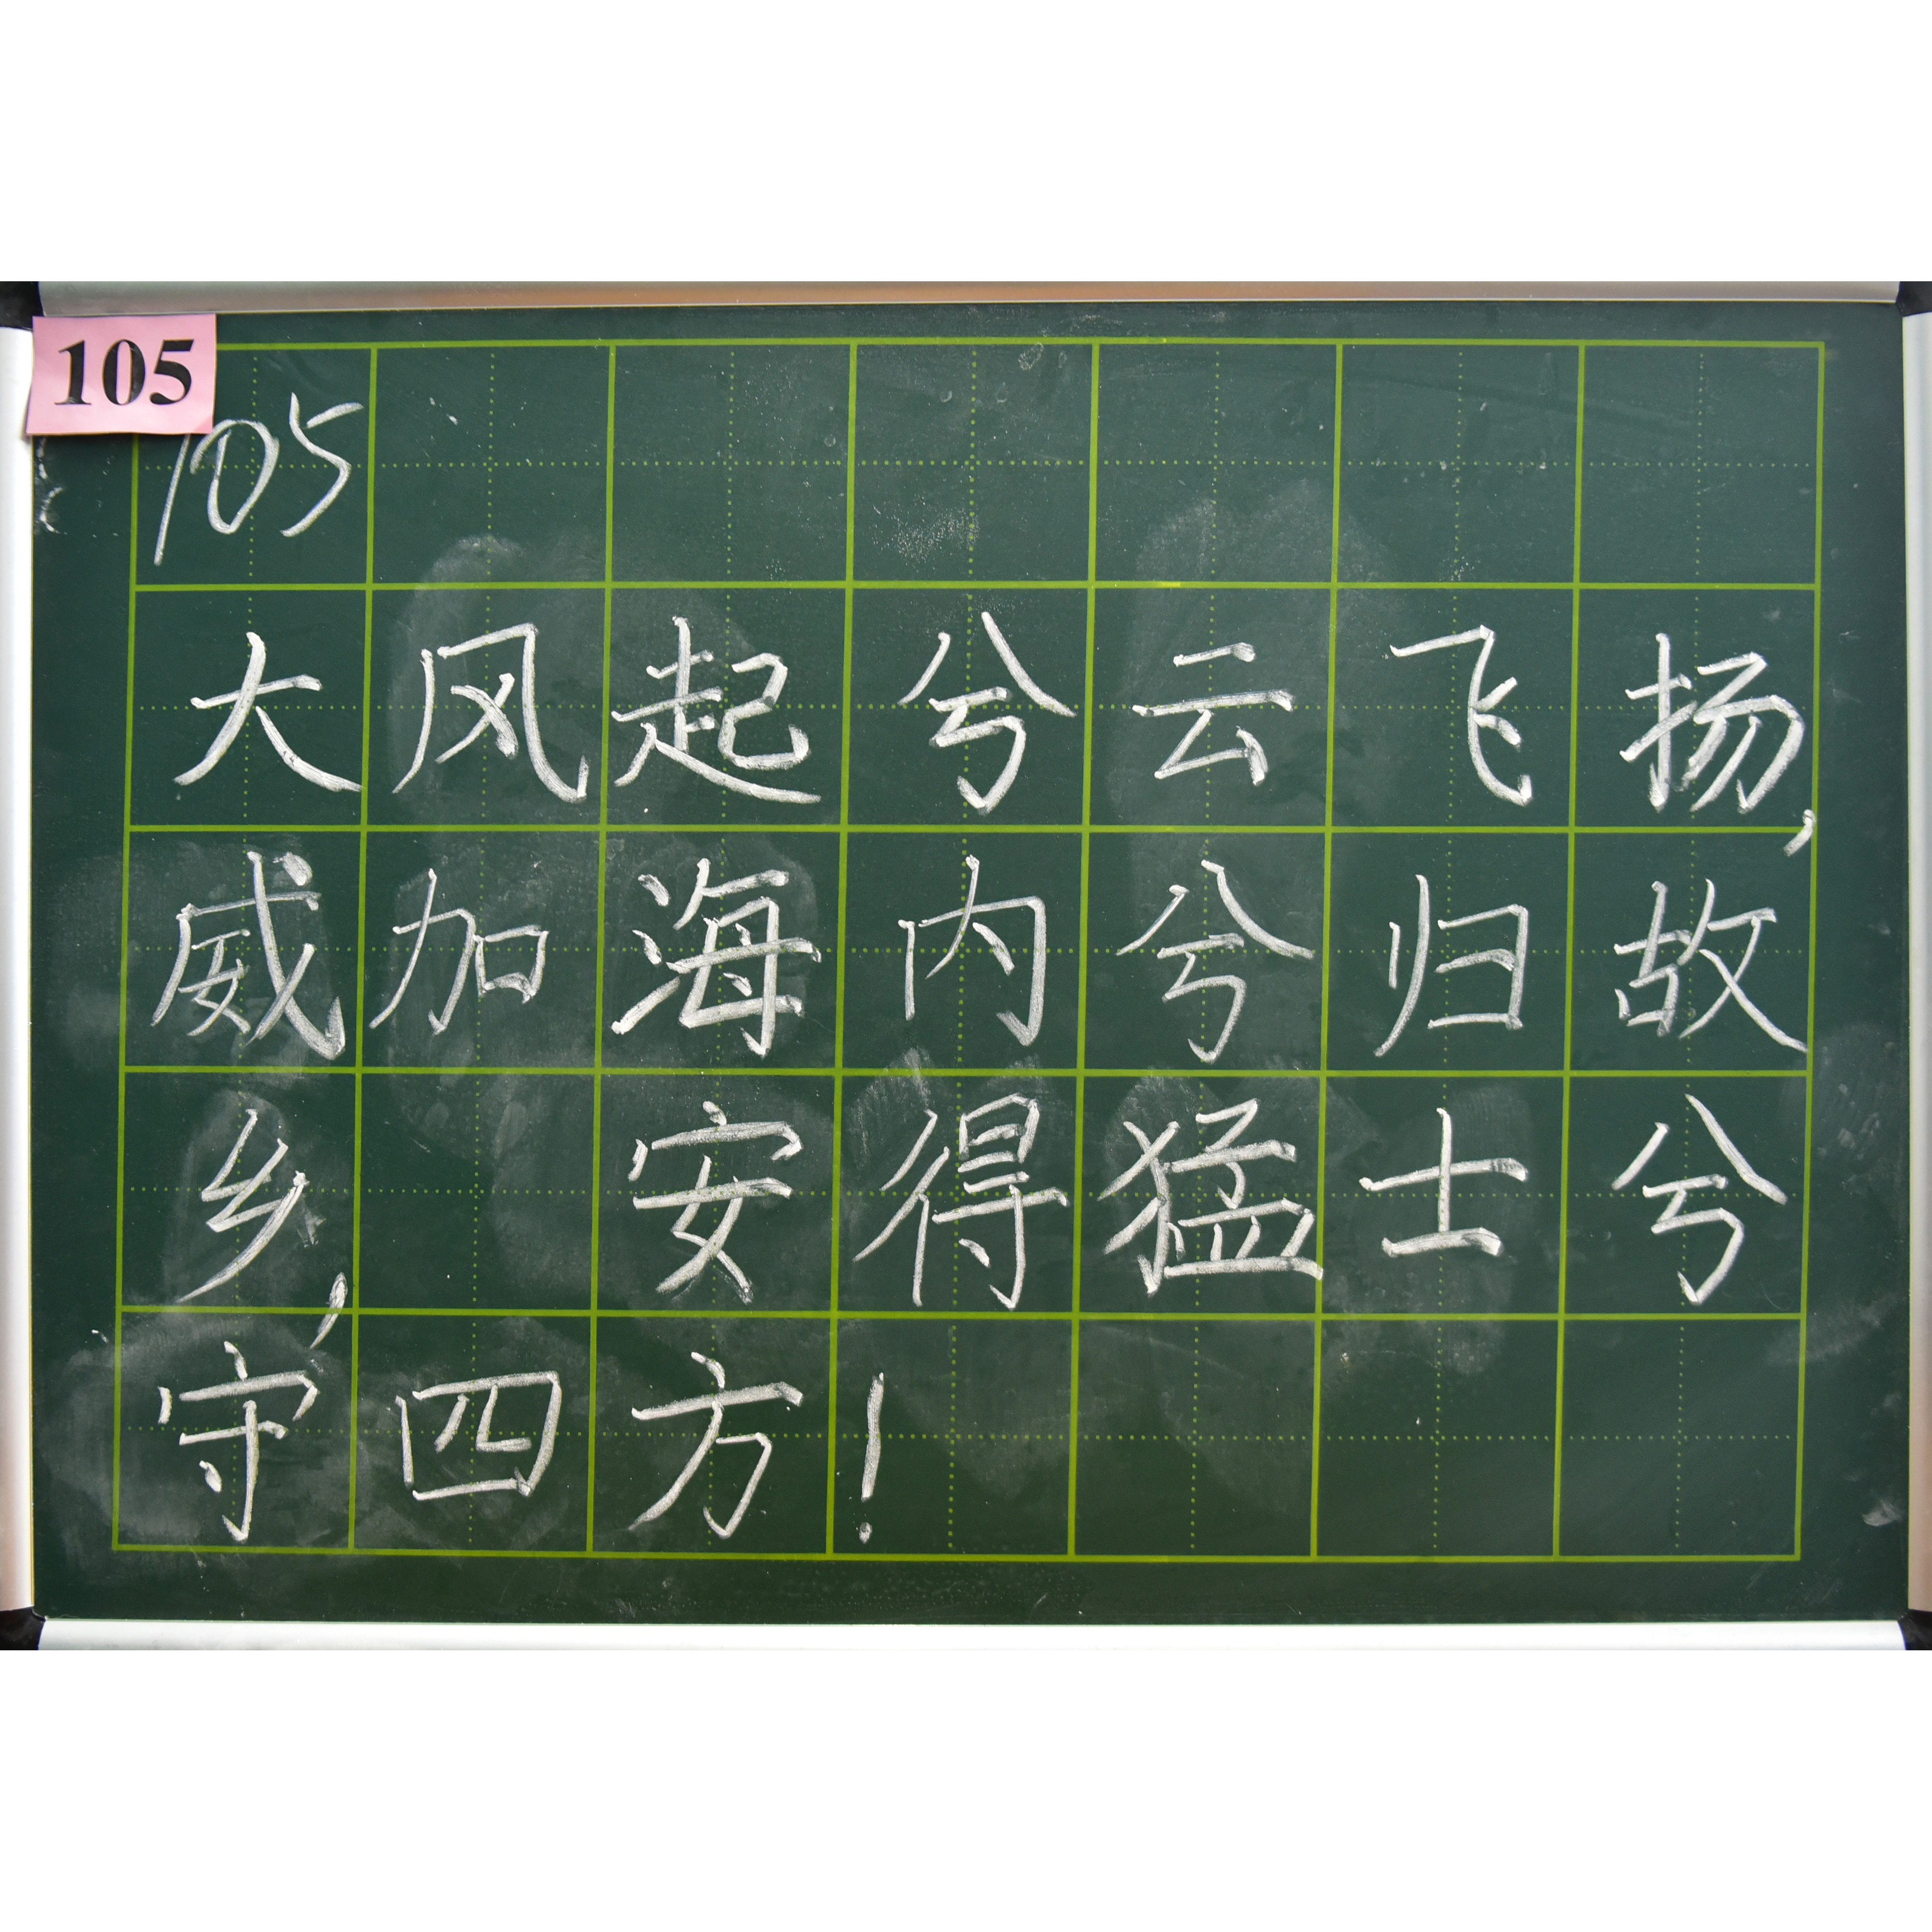 105
105
大风起兮云飞扬,
威加海内兮归故
乡, 安得猛士兮
守四方!